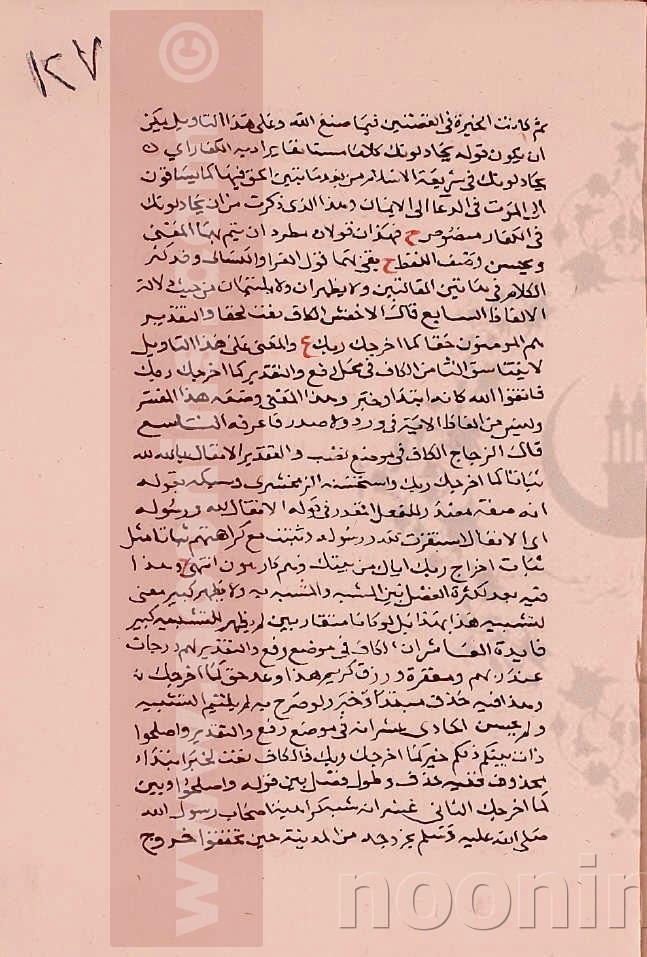 ١٢٧
ثم كانت الخيرة في القصتين فيما صنع الله وعلى هذا التاويل يمكن
ان يكون قوله يجادلونك كلاما مستانفا يراد به الكفار اي
يجادلونك في شريعة الاسلام من بعد ما تبين الحق فيها كانما يساقون
الى الموت في الدعا الى الايمان وهذا الذي ذكرت من ان يجادلونك
في الكفار منصوص ح فهذان قولان مطردان يتم بهما المعنى
ويحسن رصف اللفظ ح يعني بهما قول الفرا والكسائي وقد كثر
الكلام في هاتين المقالتين ولا يظهران ولا يلتئمان من حيث دلالة
الالفاظ السابع قال الاخفش الكاف نعت لحقا والتقدير
هم المومنون حقا كما اخرجك ربك ع والمعنى على هذا التاويل
لا يتناسق الثامن الكاف في محل رفع والتقدير كما اخرجك ربك
فاتقوا الله كانه ابتدا وخبر وهذا المعنى وضعه هذا المفسر
وليس من الفاظ الاية في ورد ولا صدر فاعرفه التاسع
قال الزجاج الكاف في موضع نصب والتقدير الانفال ثابتة لله
ثباتا كما اخرجك ربك واستحسنه الزمخشري
انه صفة مصدر للفعل المقدر في قوله الانفال لله ورسوله
اي الانفال استقرت لله ورسوله وثبتت مع كراهتهم ثباتا مثل
ثبات اخراج ربك اياك من بيتك وهم كارهون انتهى وهذا
فيه بعد لكثرة الفصل بين المشبه والمشبه به ولا يظهر كبير معنى
لتشبيه هذا بهذا بل لو كانا متقاربين لم يظهر للتشبيه كبير
فايدة العاشر ان الكاف في موضع رفع والتقدير لهم درجات
عند ربهم ومغفرة ورزق كريم هذا وعد حق كما اخرجك
وهذا فيه حذف مبتدا وخبر ولو صرح به لم يلتئم التشبيه
ولم يحسن الحادي عشر انه في موضع رفع والتقدير واصلحوا
ذات بينكم ذلكم خير كما اخرجك ربك فالكاف نعت لخبر ابتداء
محذوف ففيه حذف وطول فصل بين قوله واصلحوا وبين
كما اخرجك الثاني عشر انه شبه كراهية اصحاب رسول الله
صلى الله عليه وسلم بخروجه من المدينة حين تحققوا خروج
www.noonin
©
noonin